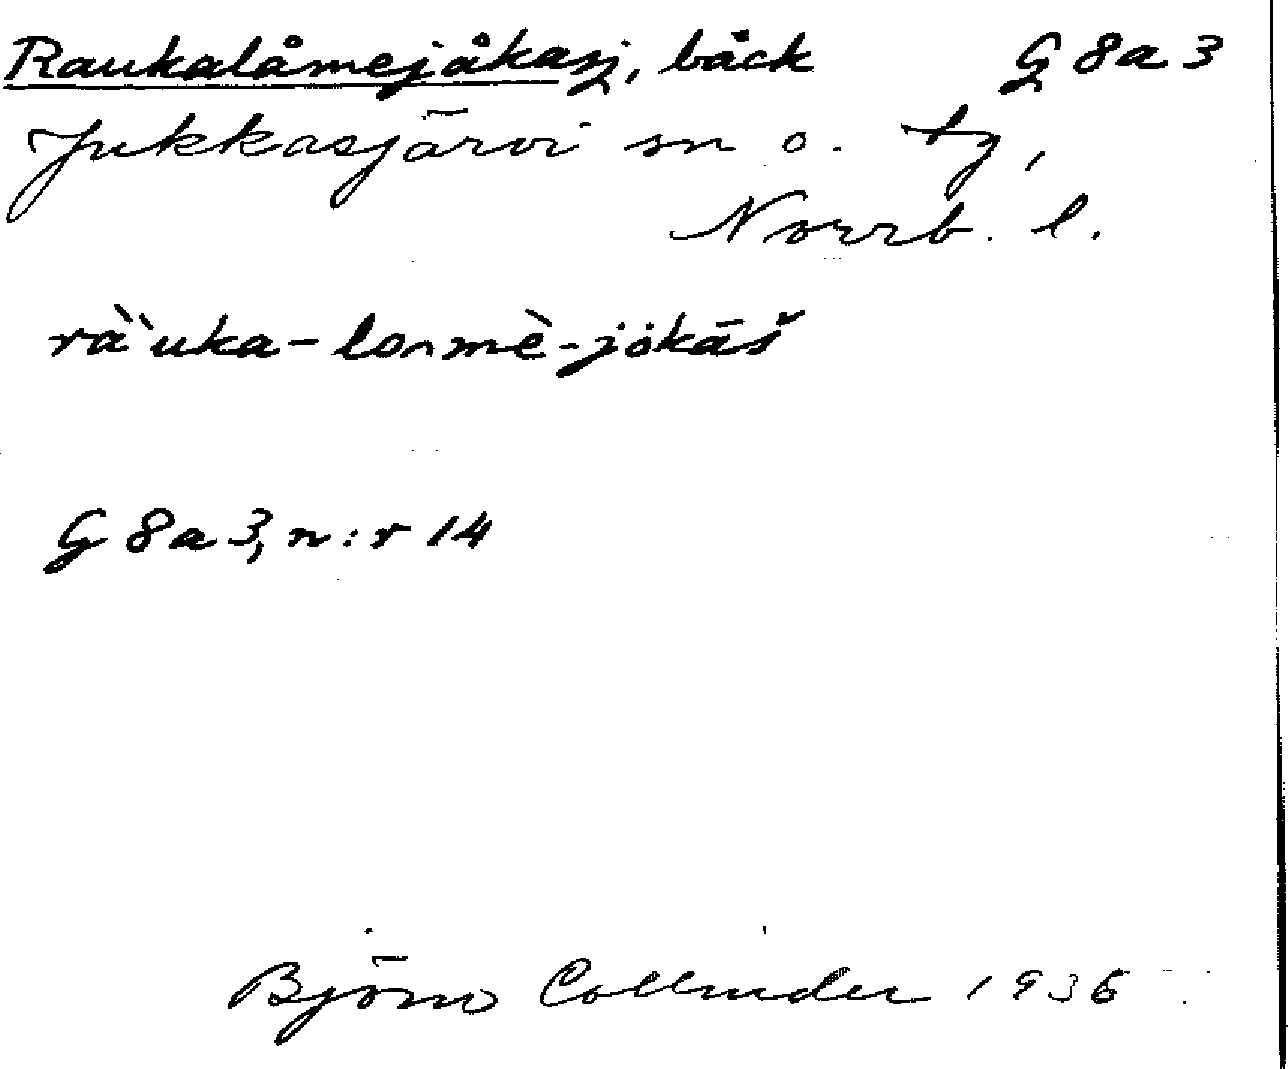 Raukalåmejåkasj, bäck G 8a 3
Jukkasjärvi sn o. tg,
Norrb. l.
rà̀uka-lomè-jökāš
G 8a 3, n:r 14
Björn Collinder 1936